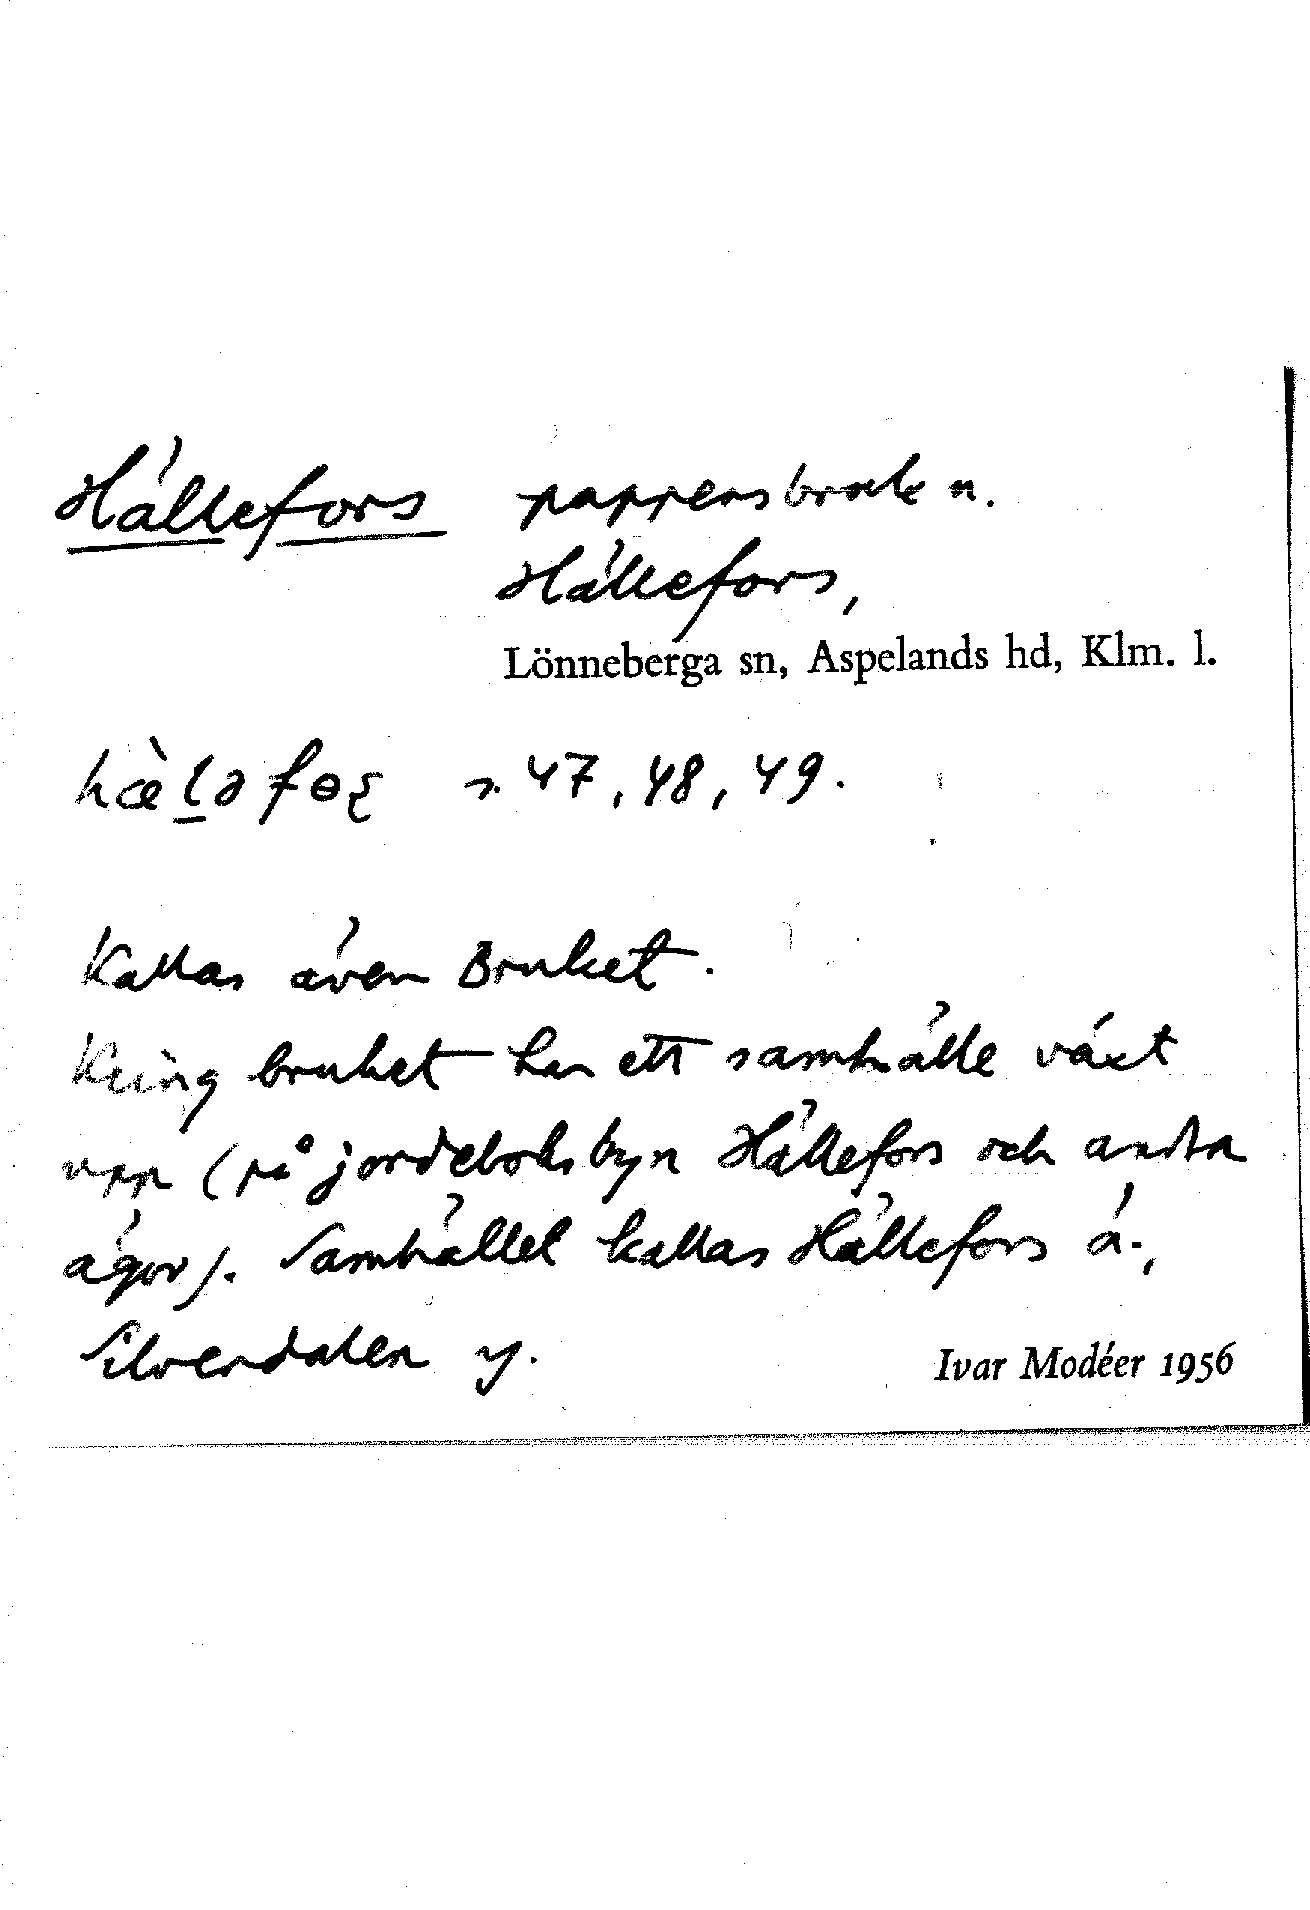 Hällefors pappersbruk u.
Hällefors,
Lönneberga sn, Aspelands hd, Klm. l.
s. 47, 48, 49.
Kallas även Bruket.
Kring bruket har ett samhälle växt
upp (på jordeboksbyn Hällefors och andra
ägor). Samhället kallas Hällefors ä.,
Silverdalen y.
Ivar Modéer 1956